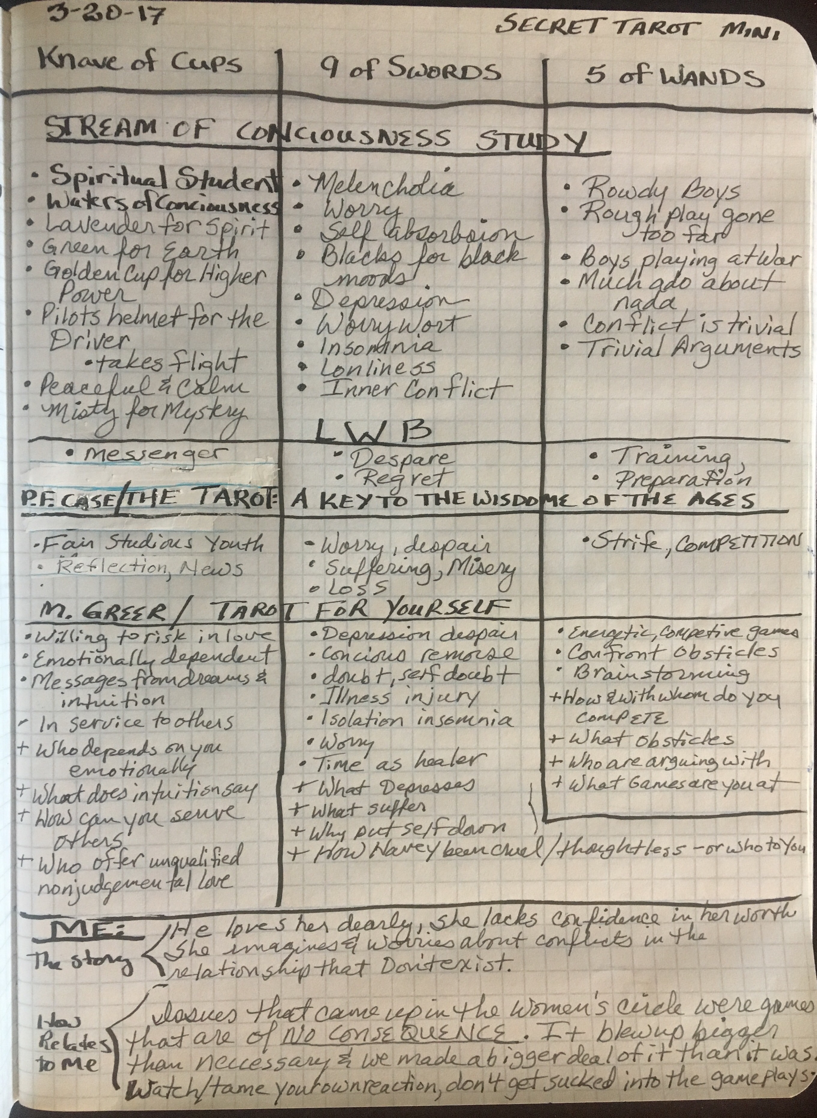 3-20-17
SECRET TAROT MINI
Knave of Cups
9 of SWORDS
5 of WANDS
STREAM OF CONCIOUSNESS STUDY
• Spiritual Student
• Waters of Conciousness
• Lavender for Spirit
• Green for Earth
• Golden Cup for Higher
Power
• Pilots helmet for the
Driver
• takes flight
• Peaceful & Calm
• Misty for Mystery
• Melencholia
• Worry
• Self absorbsion
• Blacks for black
moods
• Depression
• Worry Wort
• Insomnia
• Lonliness
• Inner Conflict
• Rowdy Boys
• Rough play gone
too far
• Boys playing at War
• Much ado about
nada
• Conflict is trivial
• Trivial Arguments
LWB
• Messenger
• Despare
• Regret
• Training,
• Preparation
P.F. CASE/THE TAROT: A KEY TO THE WISDOME OF THE AGES
• Fair Studious Youth
• Reflection, News
• Worry, despair
• Suffering, Misery
• Loss
• Strife, COMPETITION
M. GREER / TAROT FOR YOURSELF
• Willing to risk in love
• Emotionally dependent
• Messages from dreams &
intuition
- In service to others
+ Who depends on you
emotionally
+ What does intuition say
+ How can you serve
others
+ Who offer unqualified
nonjudgemental love
• Depression despair
• Concious remorse
• doubt, self doubt
• Illness injury
• Isolation insomnia
• Worry
• Time as healer
+ What Depresses
+ What suffer
+ Why put self down
+ How Have y been cruel/thoughtless - or who to You
• Energetic, Competive games
• Confront obsticles
• Brainstorming
+ How & with whom do you
COMPETE
+ What Obsticles
+ Who are arguing with
+ What Games are you at
ME:
The story
He loves her dearly, she lacks confidence in her worth
She imagines & worries about conflicts in the
relationship that Don't exist.
How
Relates
to Me
Issues that came up in the Women's circle were games
that are of NO CONSEQUENCE. It blew up bigger
than neccessary & we made a bigger deal of it than it was.
Watch/tame your own reaction, don't get sucked into the game plays.